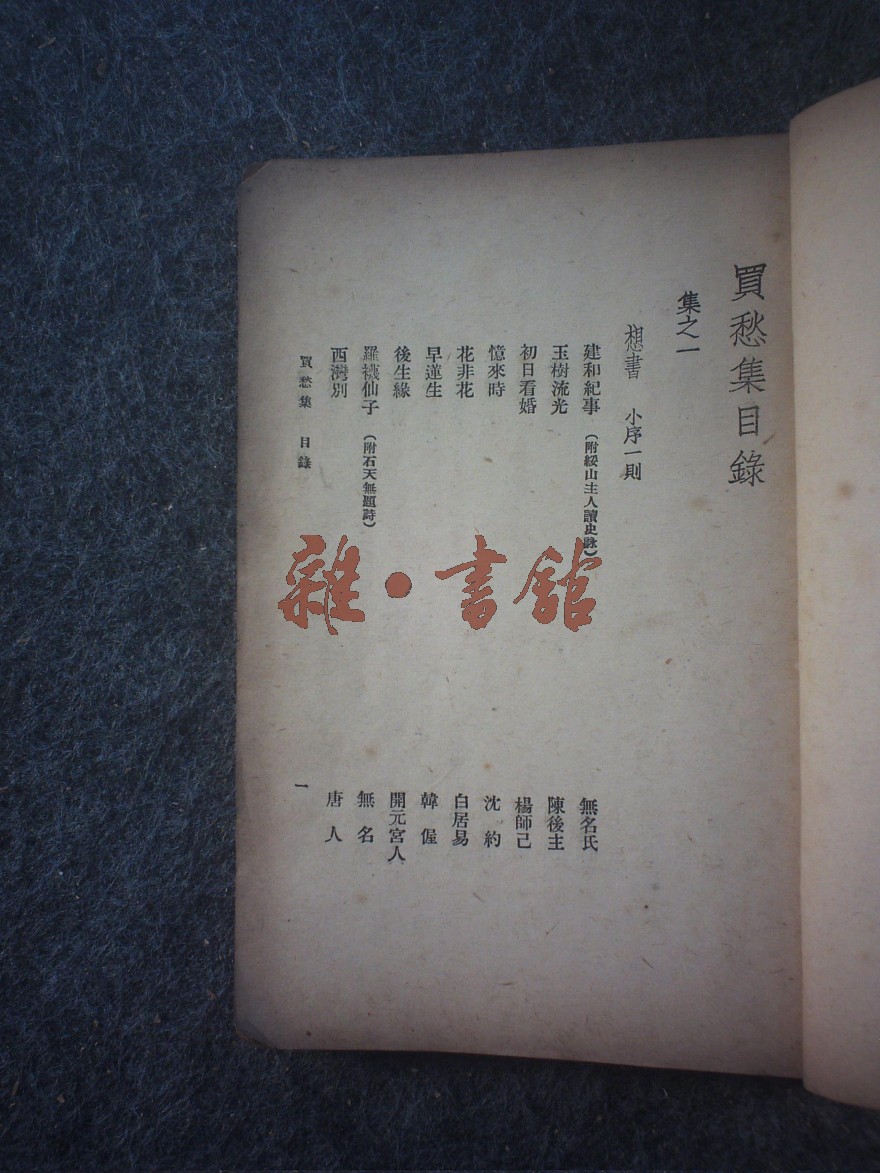 買愁集目錄
集之一
想書 小序一則
建和紀事(附綏山主人讀史詠) 無名氏
玉樹流光 陳後主
初日看婚 楊師己
憶來時 沈約
花非花 白居易
早蓮生 韓偓
後生緣 開元宮人
羅襪仙子(附石天無題詩) 無名
西灣別 唐人
買愁集 目錄 一
雜・書館